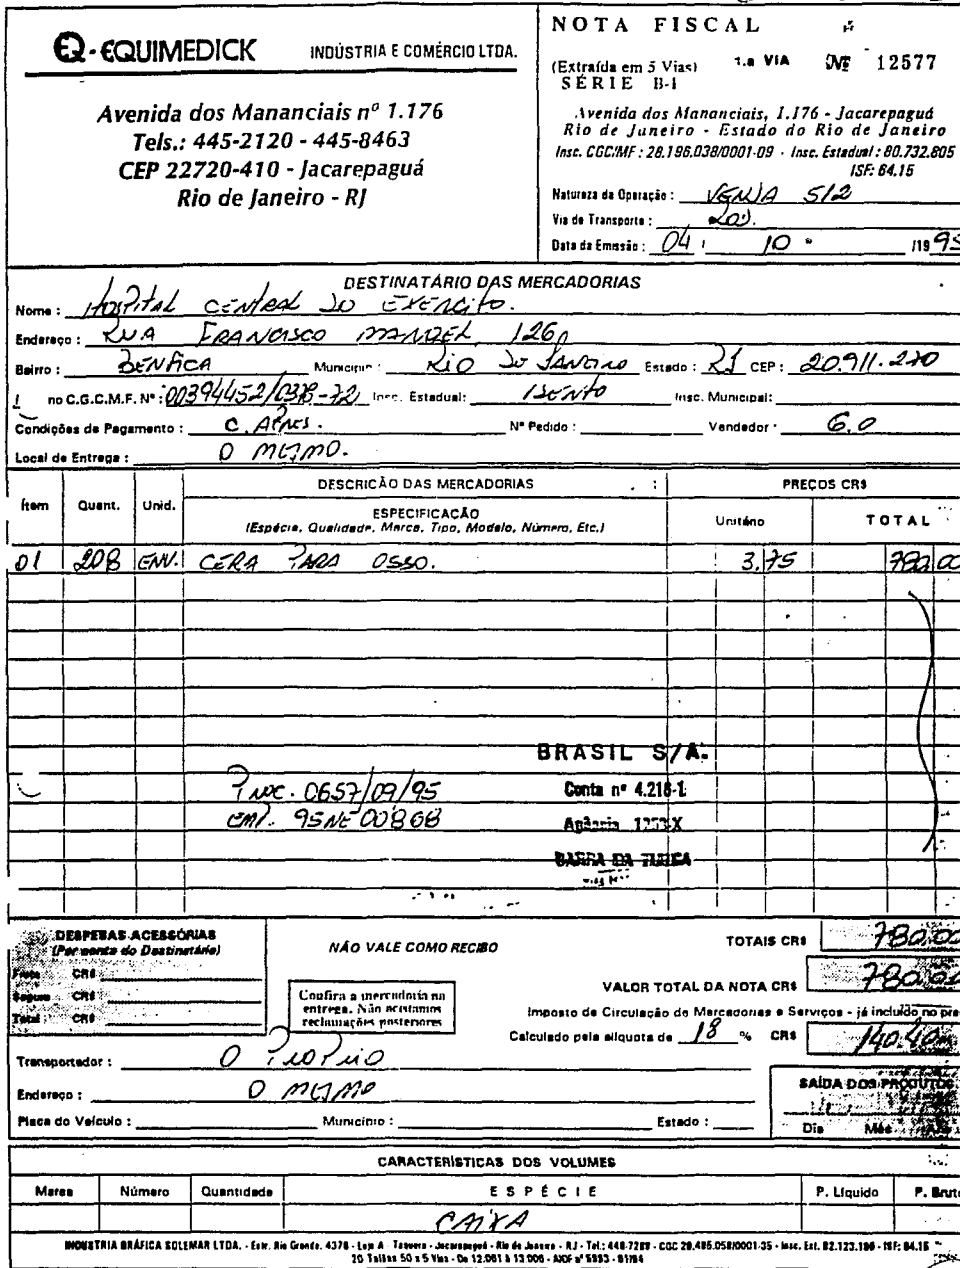 EQ-EQUIMEDICK INDÚSTRIA E COMÉRCIO LTDA.
Avenida dos Mananciais nº 1.176
Tels.: 445-2120 - 445-8463
CEP 22720-410 - Jacarepaguá
Rio de Janeiro - RJ
NOTA FISCAL
(Extraída em 5 Vias) 1.a VIA Nº 12577
SÉRIE B-1
Avenida dos Mananciais, 1.176 - Jacarepaguá
Rio de Janeiro - Estado do Rio de Janeiro
Insc. CGC/MF : 28.196.038/0001-09 - Insc. Estadual : 80.732.805
ISF: 64.15
Natureza da Operação : VENDA 512
Via de Transporte : ROD.
Data da Emissão : 04 / 10 /1995
DESTINATÁRIO DAS MERCADORIAS
Nome : HOSPITAL CENTRAL DO EXERCITO.
Endereço : RUA FRANCISCO MANOEL 126
Bairro : BENFICA Município : RIO DE JANEIRO Estado : RJ CEP : 20.911-270
no C.G.C.M.F. Nº : 00394452/0378-72 Insc. Estadual: ISENTO Insc. Municipal:
Condições de Pagamento : C. APRES. Nº Pedido : Vendedor : 6.0
Local de Entrega : O MESMO.
DESCRIÇÃO DAS MERCADORIAS PREÇOS CR$
Ítem Quant. Unid. ESPECIFICAÇÃO Unitário TOTAL
(Espécie, Qualidade, Marca, Tipo, Modelo, Número, Etc.)
01 208 ENV. CERA PARA OSSO. 3,75 780,00
BRASIL S/A.
PROC. 0657/09/95 Conta nº 4.218-1
EMP. 95NE00868 Agência 1253-X
BARRA DA TIJUCA
DESPESAS ACESSÓRIAS
(Por conta do Destinatário)
Frete CR$
Seguro CR$
Total : CR$
NÃO VALE COMO RECIBO
Confira a mercadoria na
entrega. Não aceitamos
reclamações posteriores
TOTAIS CR$ 780,00
VALOR TOTAL DA NOTA CR$ 780,00
Imposto de Circulação de Mercadorias e Serviços - já incluído no pre
Calculado pela alíquota de 18 % CR$ 140,40
Transportador : O PROPRIO
Endereço : O MESMO
Placa do Veículo : Município : Estado :
SAÍDA DOS PRODUTOS
Dia Mês
CARACTERÍSTICAS DOS VOLUMES
Marca Número Quantidade ESPÉCIE P. Líquido P. Bruto
CAIXA
INDÚSTRIA GRÁFICA SOLEMAR LTDA. - Estr. Rio Grande, 4376 - Loja A - Taquara - Jacarepaguá - Rio de Janeiro - RJ - Tel.: 448-7289 - CGC 28.485.058/0001-35 - Insc. Est. 82.123.186 - ISF: 64.15
20 Talões 50 x 5 Vias - De 12.001 à 13.000 - AIDF nº 5993 - 01/94